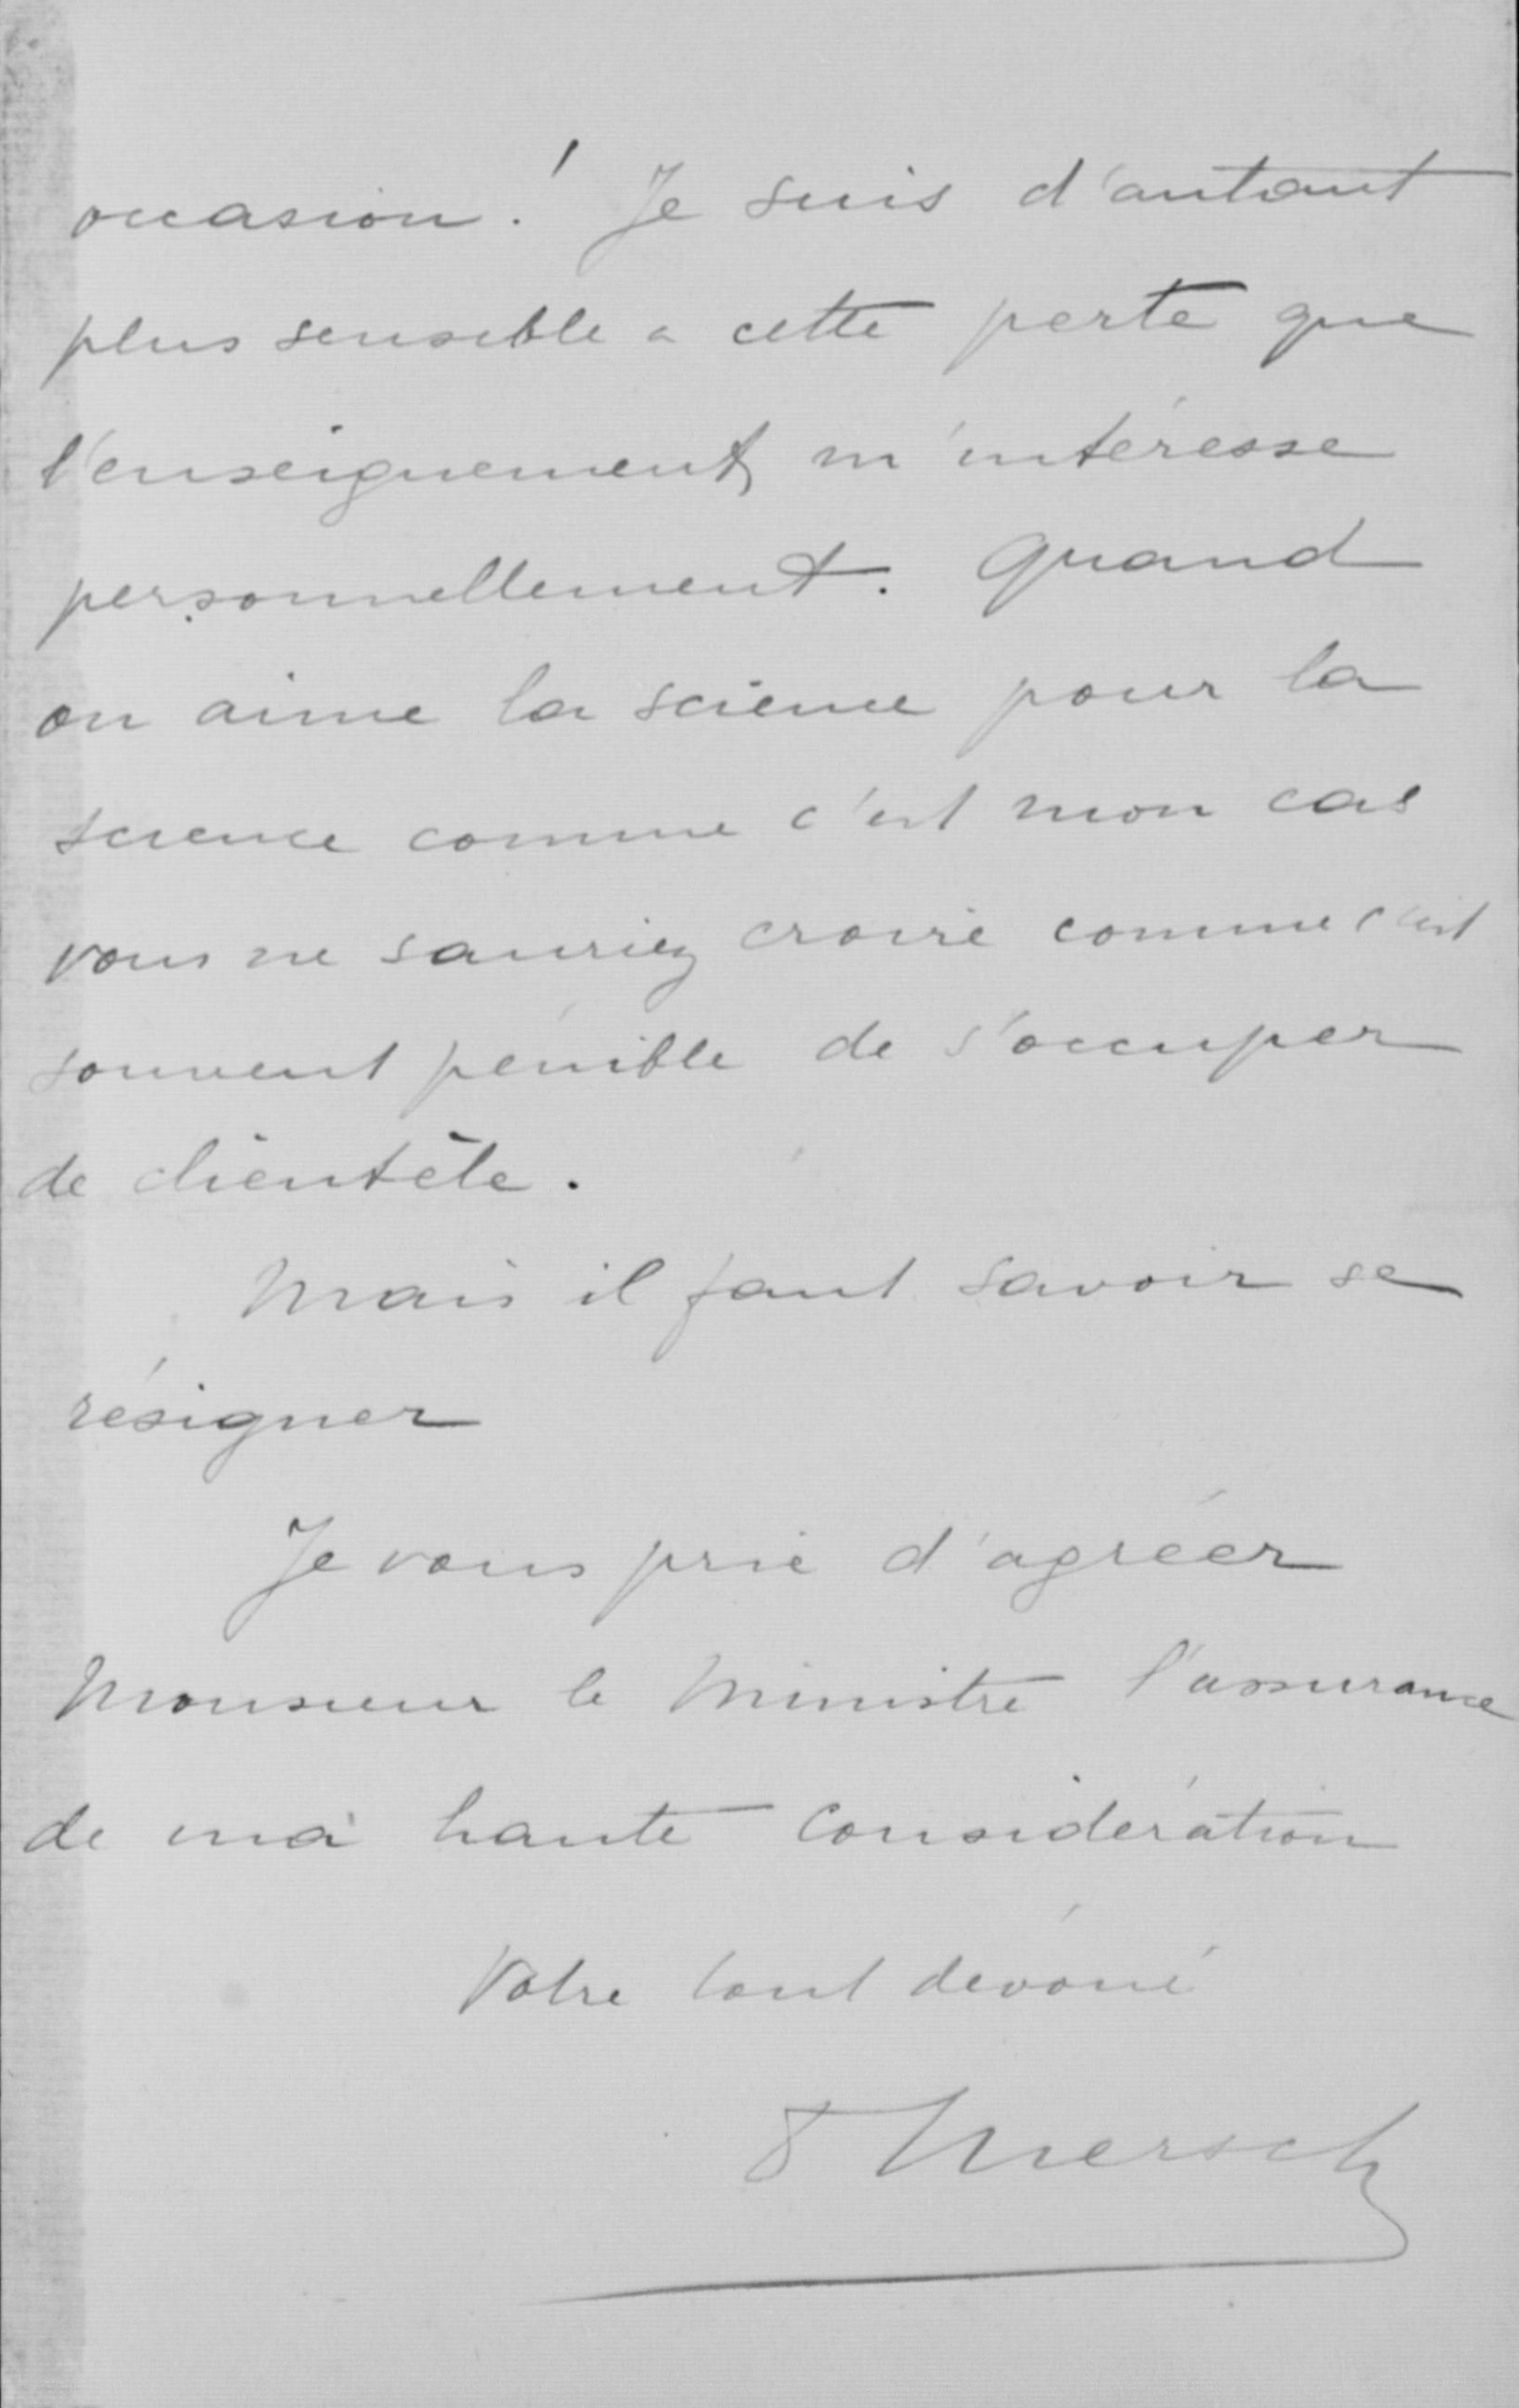 occasion! Je suis d'autant
plus sensible a cette perte que
l'enseignement m'intéresse
personnellement. Quand
on aime la science pour la
science comme c'est mon cas
vous ne sauriez croire comme c'est
souvent pénible de s'occuper
de clientèle.
Mais il faut savoir se
résigner
Je vous prie d'agréer
Monsieur le Ministre l'assurance
de ma haute considération
Votre tout dévoué
Mersch